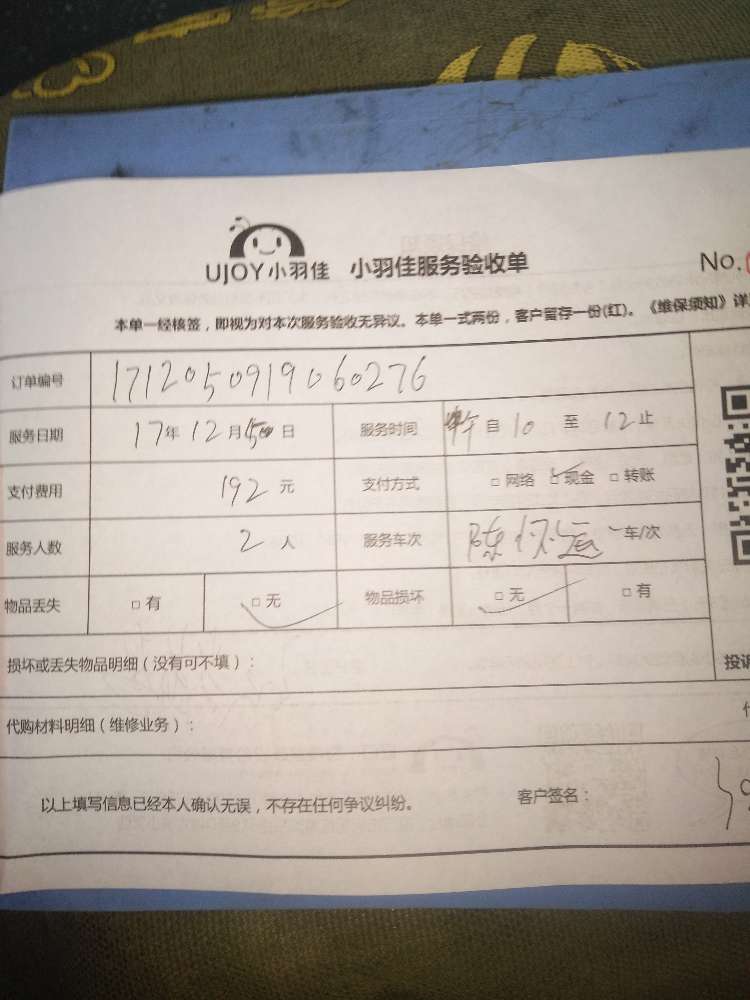 UJOY小羽佳 小羽佳服务验收单 No.
本单一经核签，即视为对本次服务验收无异议。本单一式两份，客户留存一份(红)。《维保须知》详
订单编号 1712050919060276
服务日期 17年 12月 日 服务时间 午 自 10 至 12 止
支付费用 192 元 支付方式 □ 网络 □ 现金 □ 转账
服务人数 2 人 服务车次 陈 运 车/次
物品丢失 □ 有 □ 无 物品损坏 □ 无 □ 有
损坏或丢失物品明细（没有可不填）： 投诉
代购材料明细（维修业务）：
以上填写信息已经本人确认无误，不存在任何争议纠纷。 客户签名：